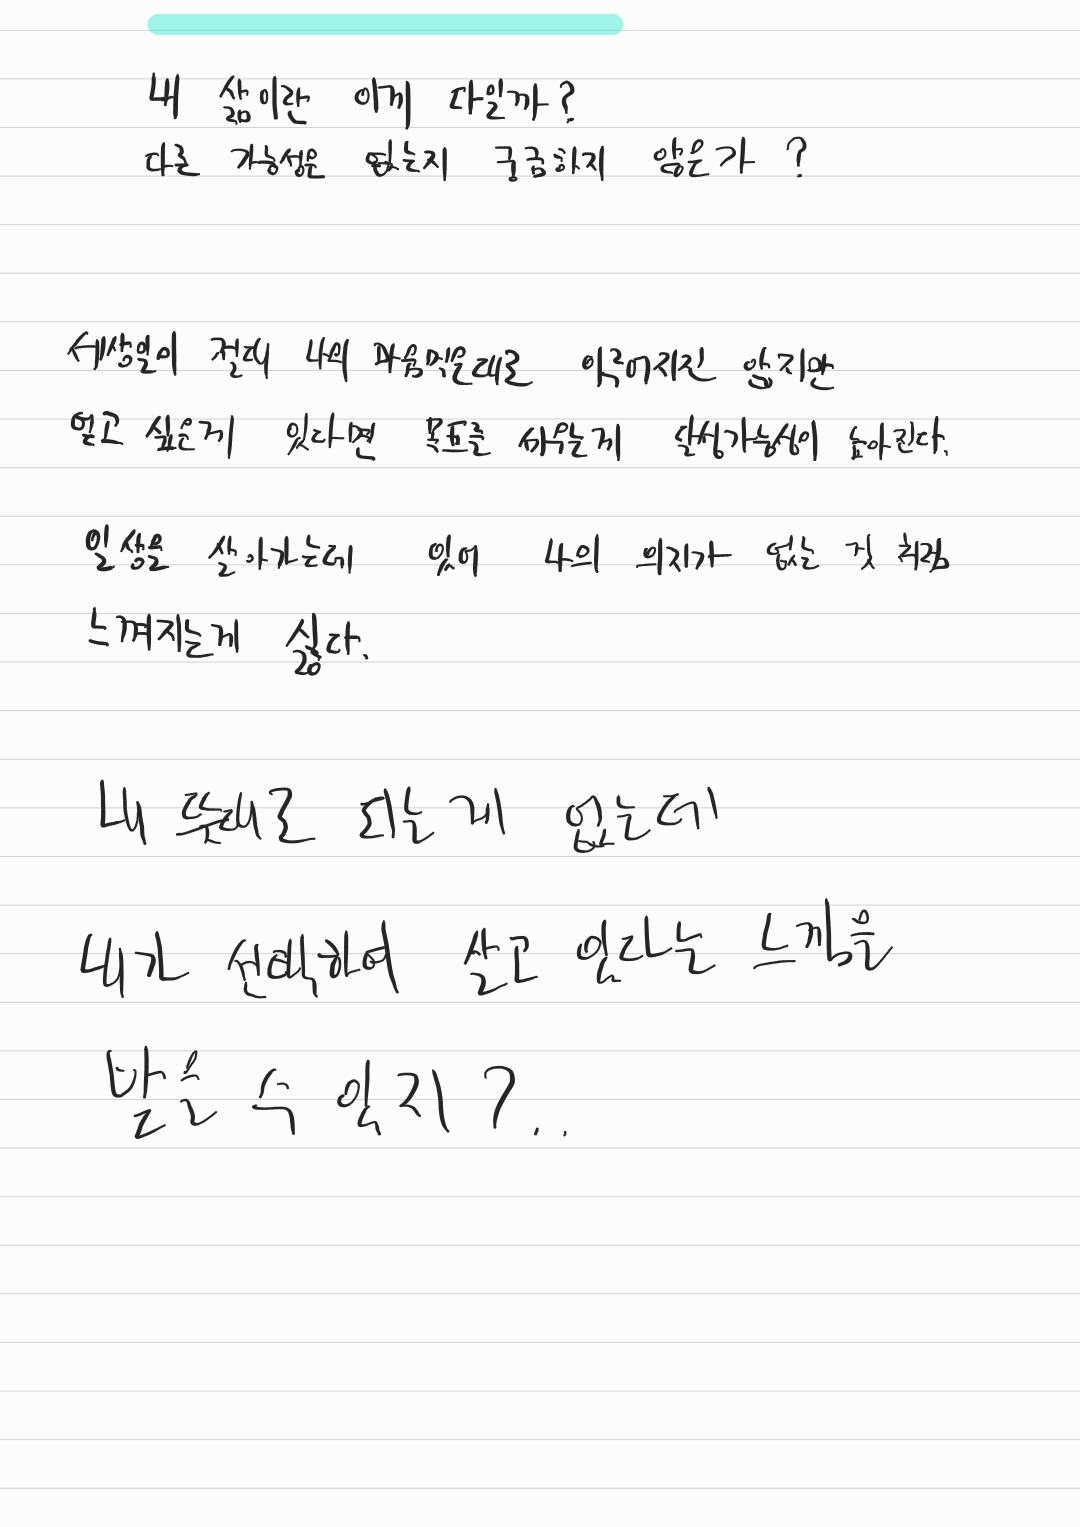 내 삶이란 이게 다일까?
다른 가능성은 없는지 궁금하지 않은가?
세상일이 절대 나의 마음먹은대로 이루어지진 않지만
얻고 싶은게 있다면 목표를 세우는게 달성가능성이 높아진다.
일생을 살아가는데 있어 나의 의지가 없는 것 처럼
느껴지는게 싫다.
내 뜻대로 되는게 없는데
내가 선택하여 살고 있다는 느낌을
받을 수 있지?..